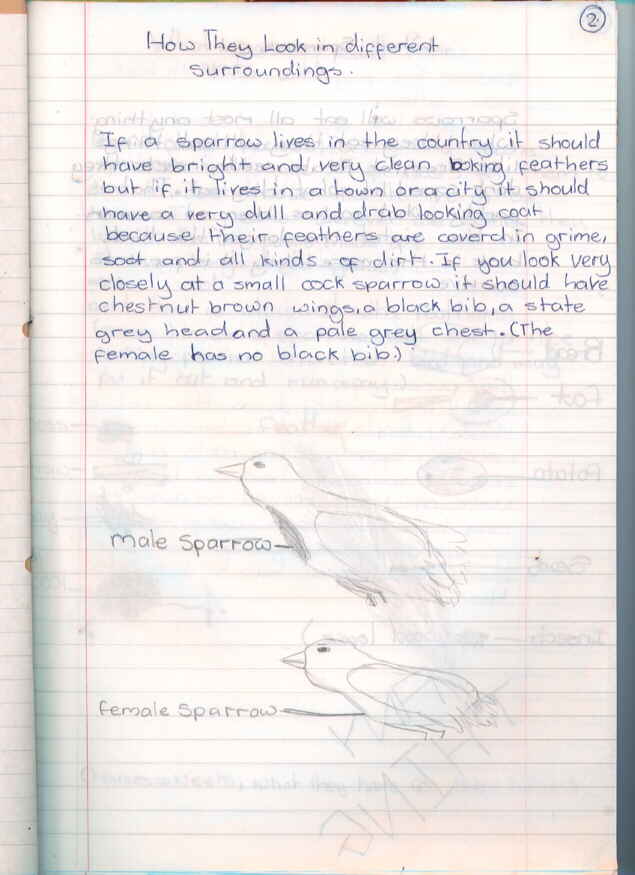 2
How They Look in different
surroundings.
If a sparrow lives in the country it should
have bright and very clean looking feathers
but if it lives in a town or a city it should
have a very dull and drab looking coat
because their feathers are coverd in grime,
soot and all kinds of dirt. If you look very
closely at a small cock sparrow it should have
chestnut brown wings, a black bib, a state
grey head and a pale grey chest. (The
female has no black bib.)
male Sparrow
female Sparrow